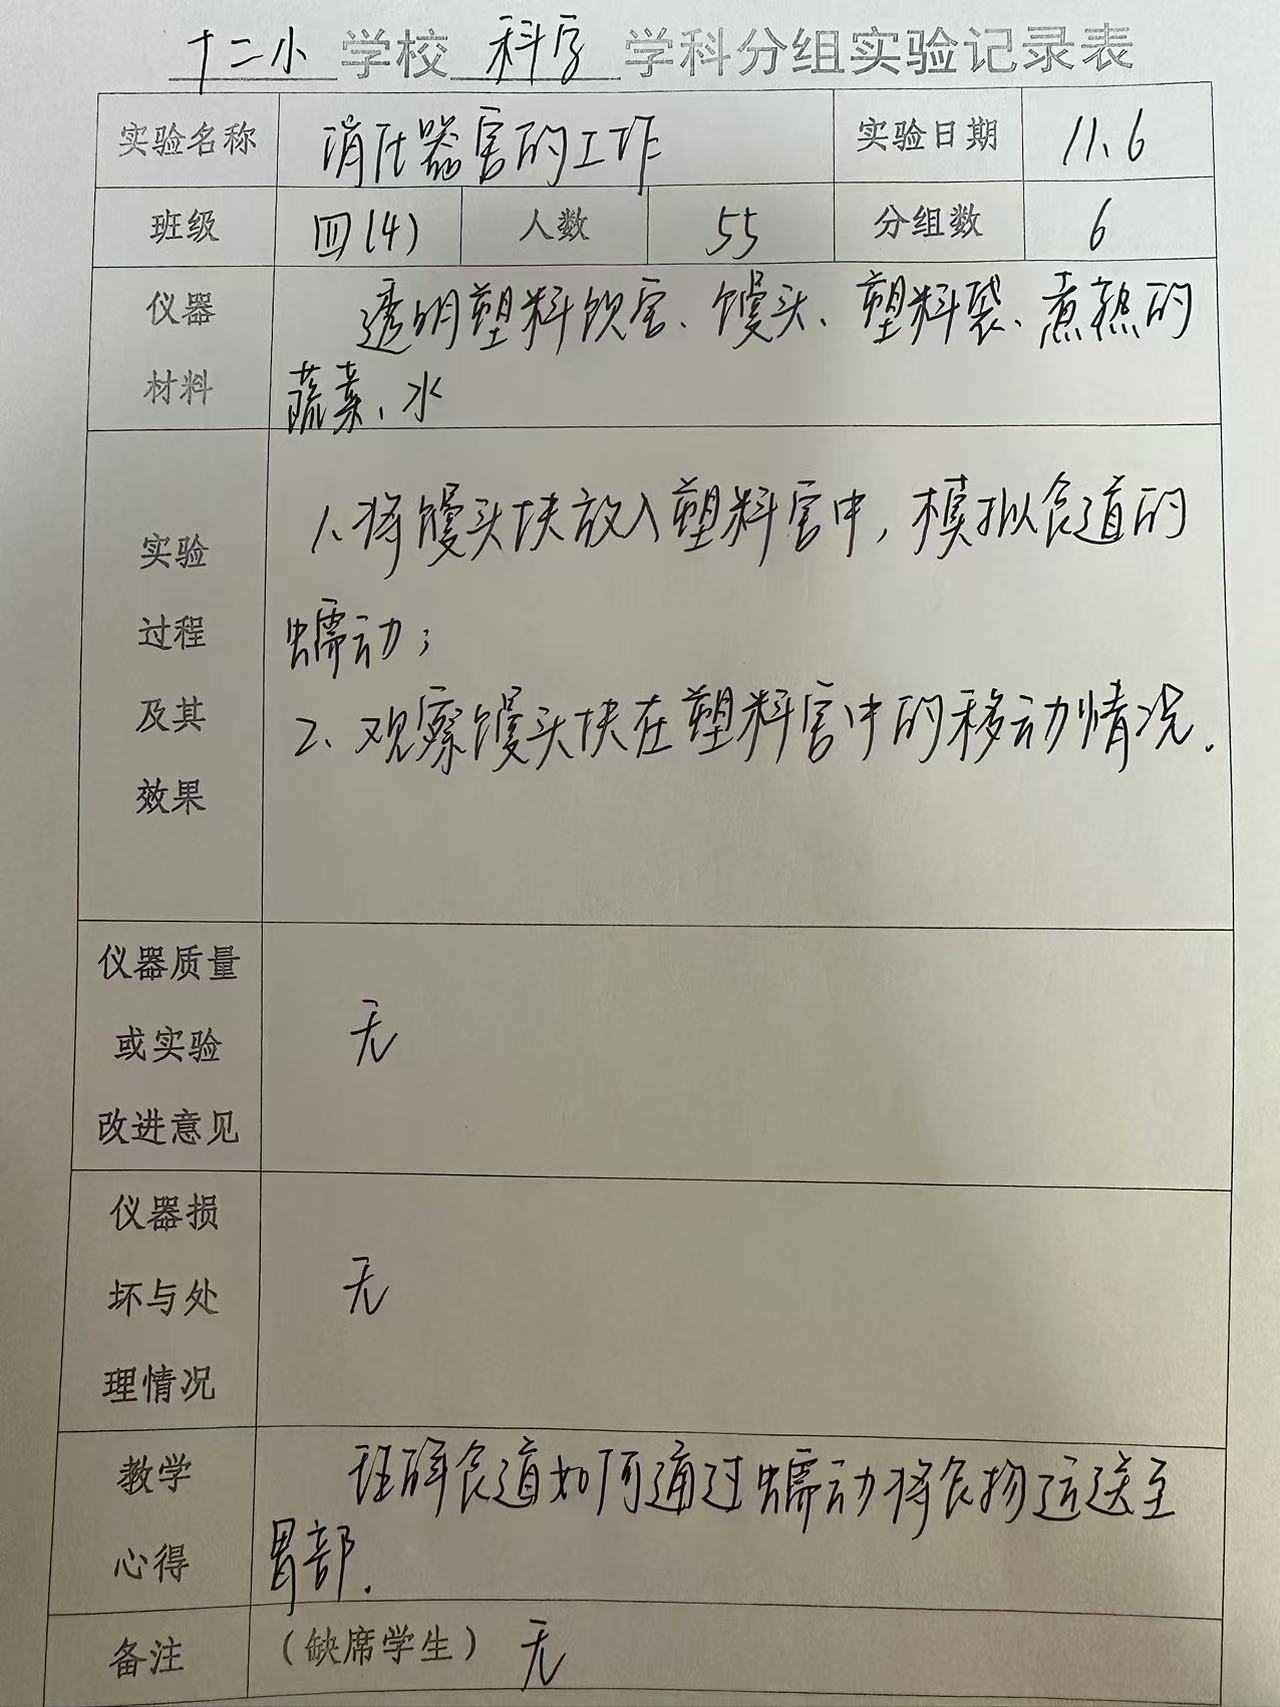 十二小 学校 科学 学科分组实验记录表
实验名称 消化器官的工作 实验日期 11.6
班级 四(4) 人数 55 分组数 6
仪器
材料
透明塑料软管、馒头、塑料袋、煮熟的
蔬菜、水
实验
过程
及其
效果
1.将馒头块放入塑料管中,模拟食道的
蠕动;
2、观察馒头块在塑料管中的移动情况.
仪器质量
或实验
改进意见
无
仪器损
坏与处
理情况
无
教学
心得
理解食道如何通过蠕动将食物运送至
胃部.
备注 (缺席学生) 无